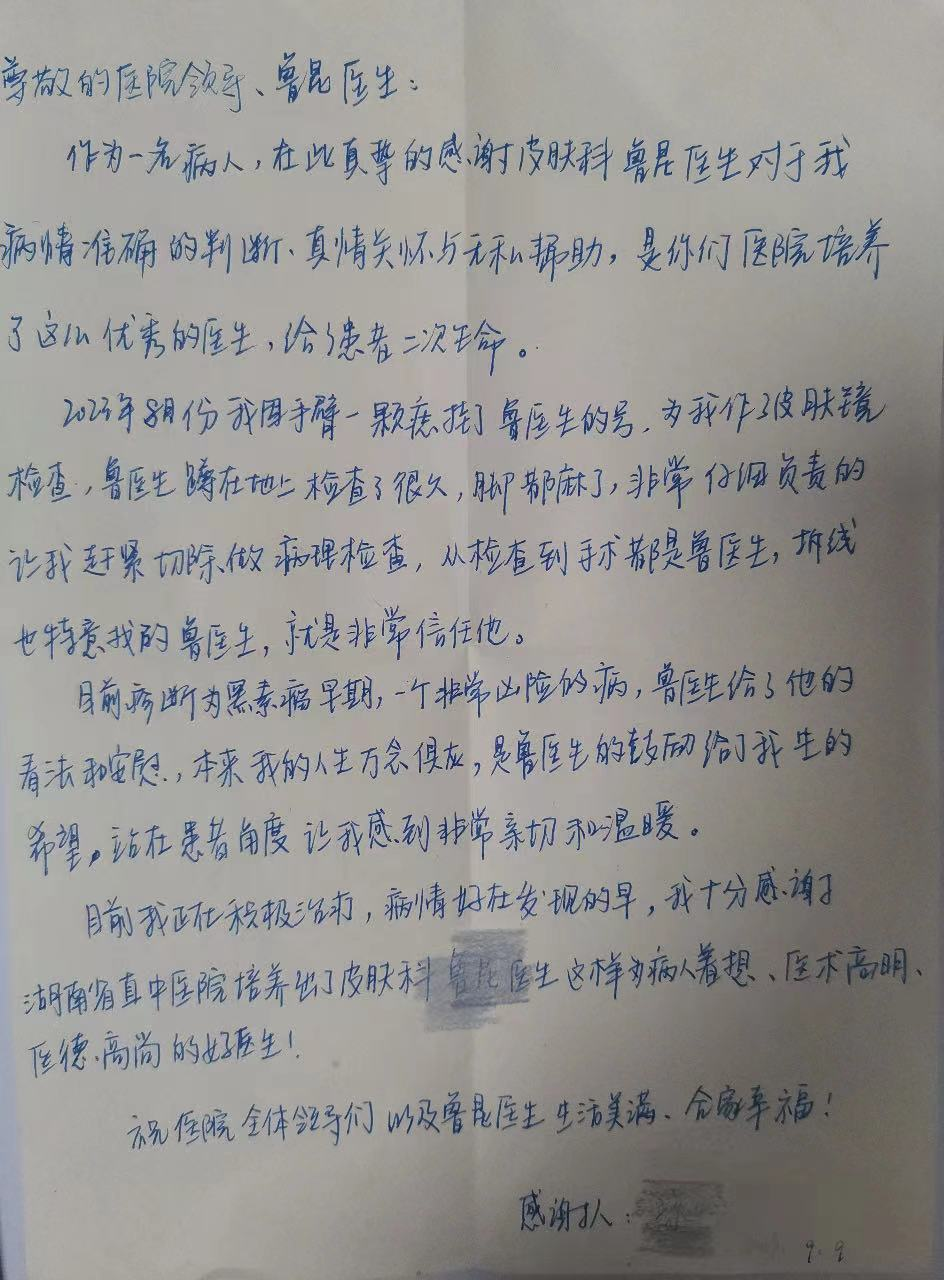 尊敬的医院领导、兽昆医生：
作为一名病人，在此真挚的感谢皮肤科兽昆医生对于我
病情准确的判断、真情关怀与无私帮助，是你们医院培养
了这么优秀的医生，给了患者二次生命。
2023年8月份我因手臂一颗痣挂了兽医生的号，为我作了皮肤镜
检查，兽医生蹲在地上检查了很久，脚都麻了，非常仔细负责的
让我赶紧切除做病理检查，从检查到手术都是兽医生，拆线
也特意找的兽医生，就是非常信任他。
目前诊断为黑素瘤早期，一个非常凶险的病，兽医生给了他的
看法和安慰，本来我的人生万念俱灰，是兽医生的鼓励给了我生的
希望。站在患者角度让我感到非常亲切和温暖。
目前我正在积极治疗，病情好在发现的早，我十分感谢
湖南省直中医院培养出了皮肤科兽昆医生这样为病人着想、医术高明、
医德高尚的好医生！
祝医院全体领导们以及兽昆医生生活美满、合家幸福！
感谢人：
9.9